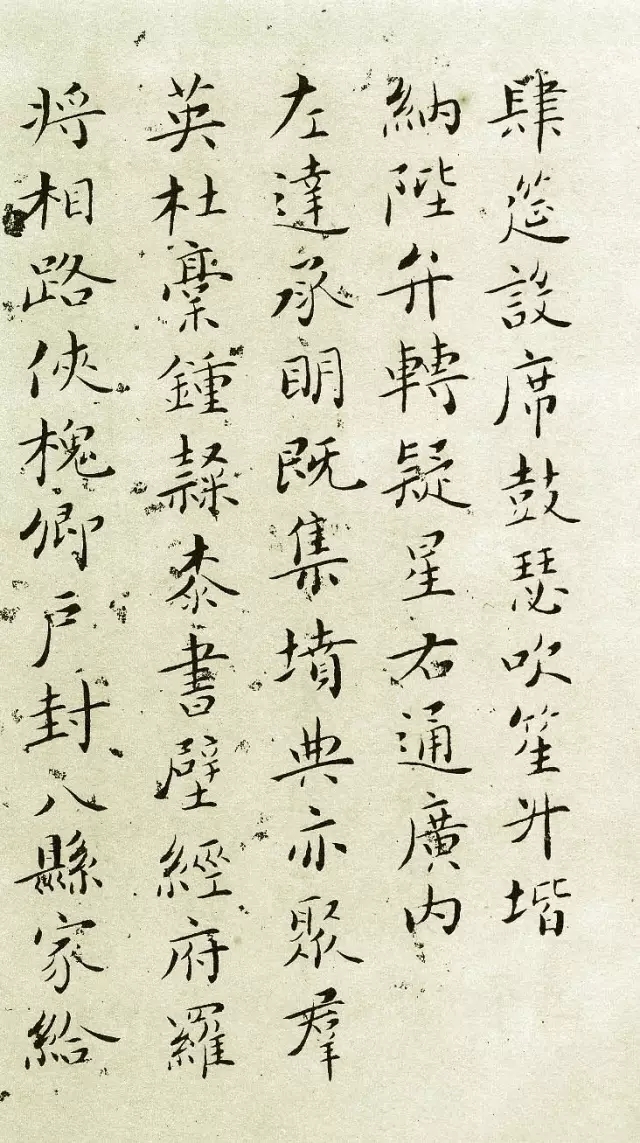 肆筵設席鼓瑟吹笙升堦
納陛弁轉疑星右通廣内
左達承明既集墳典亦聚羣
英杜稾鍾隸柒書壁經府羅
將相路俠槐卿户封八縣家給